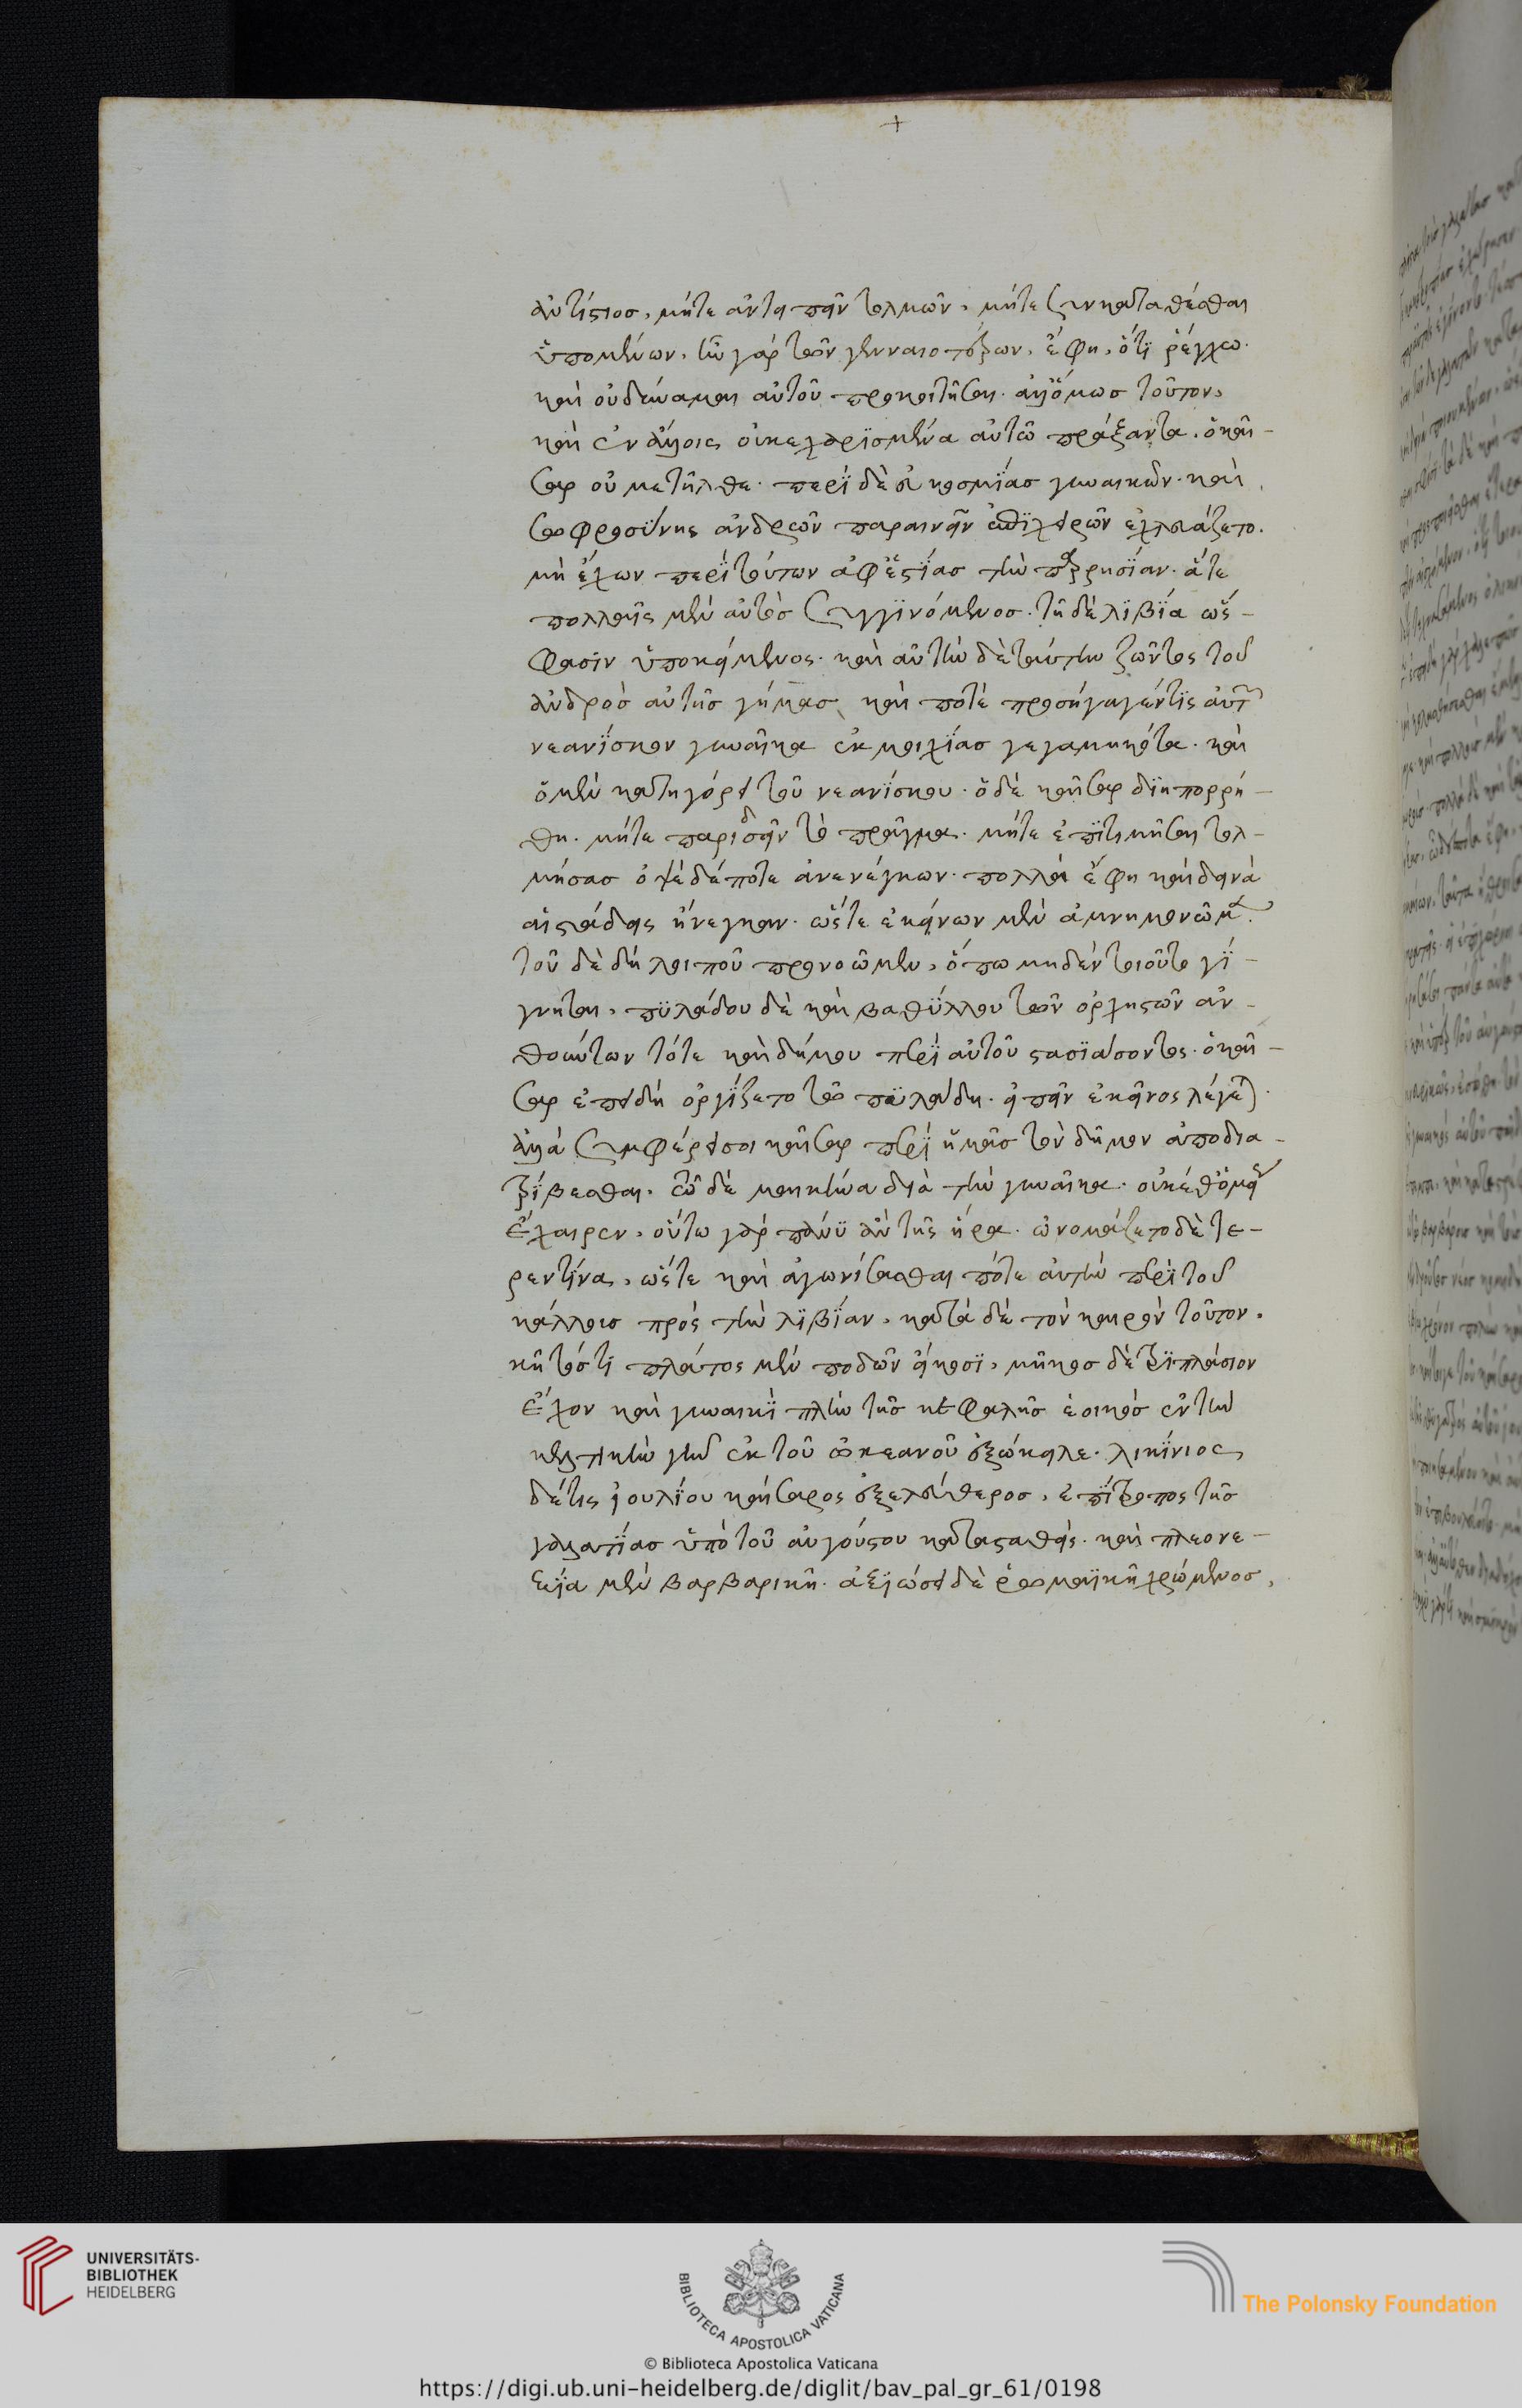 +
ἀντίστιος, μήτε ἀντειπεῖν τολμῶν, μήτε συγκαταθέσθαι
ὑπομένων. τῶν γὰρ τῶν γενναιοτέρων, ἔφη, ὅτι ῥέγχω.
καὶ οὐ δύναμαι αὐτοῦ προκοιτῆσαι. ἀλλ' ὅμως τοῦτον,
καὶ ἐν ἄλλοις οὐ κεχαρισμένα αὐτῷ πράξαντα. ὁ καῖ-
σαρ οὐ μετῆλθε. περὶ δὲ ἀκοσμίας γυναικῶν. καὶ
σωφροσύνης ἀνδρῶν παραινεῖν ἐπιχειρῶν ἐχλευάζετο.
μὴ ἔχων περὶ τούτων ἀφ' ἑστίας τὴν παρρησίαν. ἅτε
πολλαῖς μὲν αὐτὸς συγγινόμενος. τῇ δὲ λιβία ὥς
φασιν ὑποκείμενος. καὶ αὐτὴν δὲ ταύτην ζῶντος τοῦ
ἀνδρὸς αὐτῆς γήμας, καὶ ποτὲ προσήγαγέν τις αὐτῷ
νεανίσκον γυναῖκα ἐκ μοιχείας γεγαμηκότα. καὶ
ὁ μὲν κατηγόρει τοῦ νεανίσκου. ὁ δὲ καῖσαρ διηπορή-
θη. μήτε παριδεῖν τὸ πρᾶγμα. μήτε ἐπιτιμῆσαι τολ-
μήσας ὀψὲ δέ ποτε ἀνενέγκων. πολλὰ ἔφη καὶ δεινὰ
αἱ στάσεις ἤνεγκαν. ὥστε ἐκείνων μὲν ἀμνημονῶμεν.
τοῦ δὲ δὴ λοιποῦ προνοῶμεν, ὅπω μηδὲν τοιοῦτο γί-
γνηται, πυλάδου δὲ καὶ βαθύλλου τῶν ὀρχηστῶν ἀν-
θούντων τότε καὶ δήμου περὶ αὐτοῦ στασιάσοντος. ὁ καῖ-
σαρ ἐπειδὴ ὀργίζετο τῷ πυλάδη. εἰπεῖν ἐκεῖνος λέγεται.
ἀλλὰ συμφέρει σοι καῖσαρ περὶ ἡμᾶς τὸν δῆμον ἀποδια-
τρίβεσθαι. τῷ δὲ μαικήνα διὰ τὴν γυναῖκα. οὐκέθ' ὁμοίως
ἔχαιρεν. οὕτω γὰρ πάνυ αὐτῆς ἤρα. ὠνομάζετο δὲ τε-
ρεντίνα, ὥστε καὶ ἀγωνίσασθαι πότε αὐτὴν περὶ τοῦ
κάλλους πρὸς τὴν λιβίαν. κατὰ δὲ τὸν καιρὸν τοῦτον.
κῆτός τι πλάτος μὲν ποδῶν εἴκοσι, μῆκος δὲ τριπλάσιον
ἔχον καὶ γυναικὶ πλὴν τῆς κεφαλῆς ἐοικὸς ἐς τὴν
κελτικὴν γῆν ἐκ τοῦ ὠκεανοῦ ἐξώκειλε. λικίνιος
δέ τις ἰουλίου καίσαρος ἐξελεύθερος, ἐπίτροπος τῆς
γαλατίας ὑπὸ τοῦ αὐγούστου κατασταθείς. καὶ πλεονε-
ξία μὲν βαρβαρικῆ. ἀξιώσει δὲ ῥωμαϊκῆ χρώμενος,
UNIVERSITÄTS-
BIBLIOTHEK
HEIDELBERG
BIBLIOTECA APOSTOLICA VATICANA
© Biblioteca Apostolica Vaticana
The Polonsky Foundation
https://digi.ub.uni-heidelberg.de/diglit/bav_pal_gr_61/0198